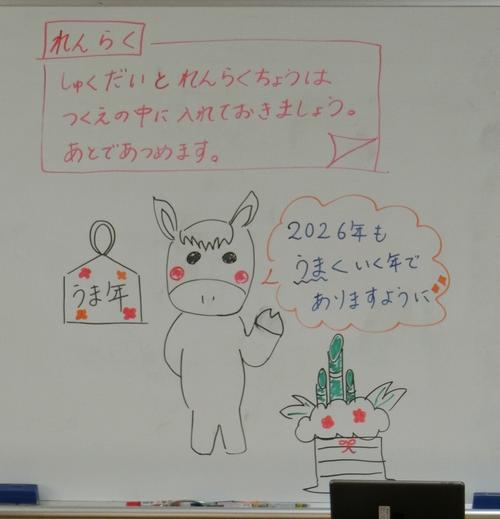 れんらく
しゅくだいと れんらくちょうは
つくえの中に入れておきましょう。
あとであつめます。
2026年も
うまくいく年で
ありますように
うま年